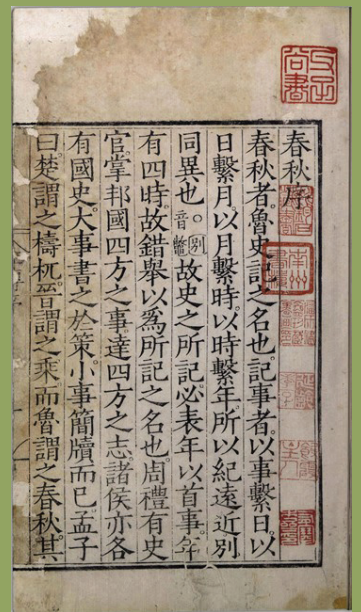 春秋序
春秋者魯史記之名也記事者以事繫日以
日繫月以月繫時以時繫年所以紀遠近別
同異也○別音鼈故史之所記必表年以首事年
有四時故錯舉以為所記之名也周禮有史
官掌邦國四方之事達四方之志諸侯亦各
有國史大事書之於策小事簡牘而已孟子
曰楚謂之檮杌晉謂之乘而魯謂之春秋其